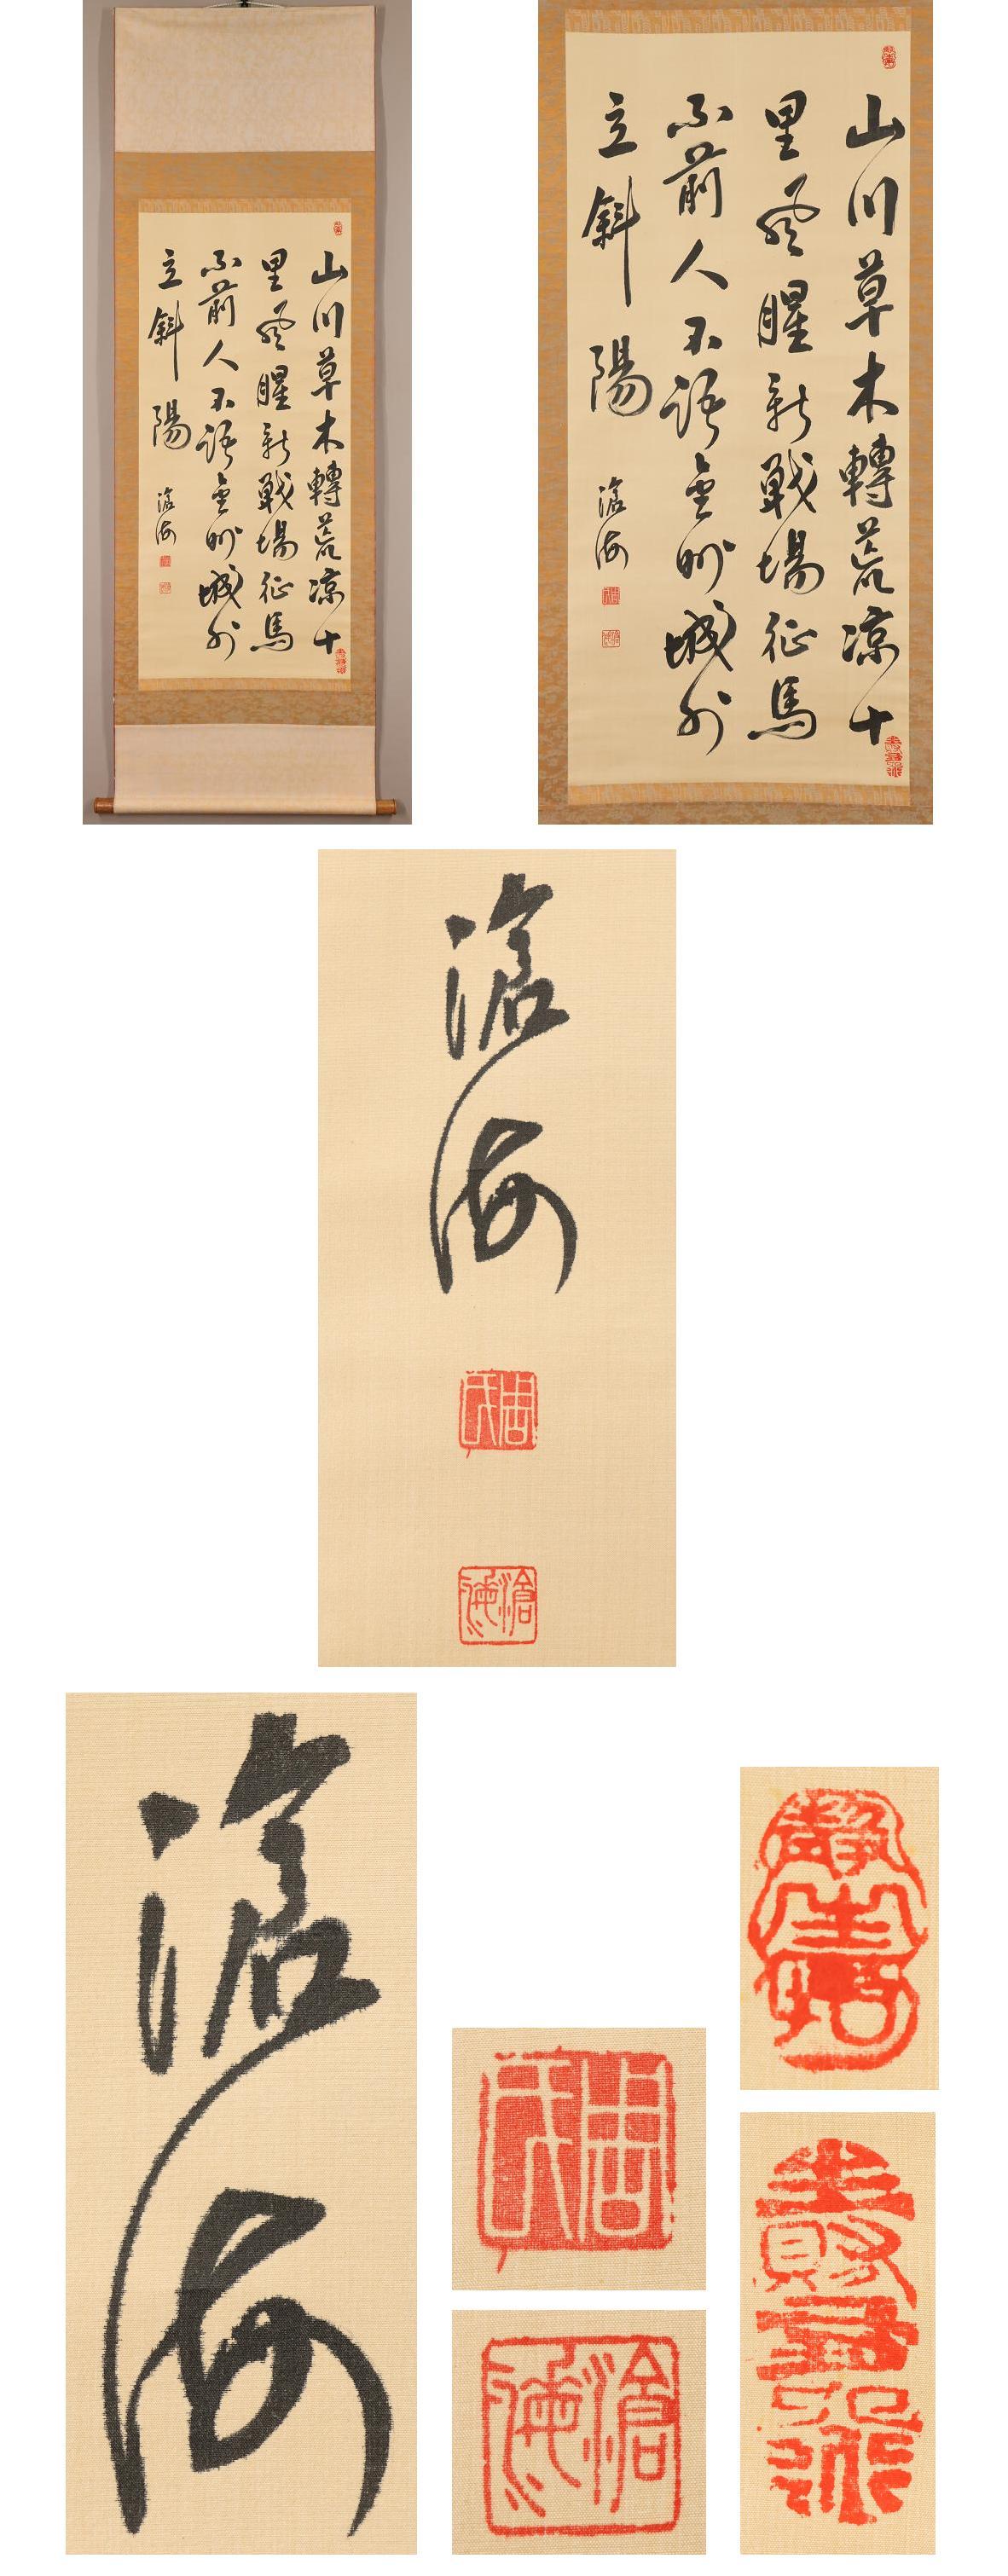 山川草木轉荒凉十
里風腥新戰場征馬
不前人不語金州城外
立斜陽
滄海
山川草木轉荒凉十
里風腥新戰場征馬
不前人不語金州城外
立斜陽
滄海
滄海
滄海
滄海
滄海